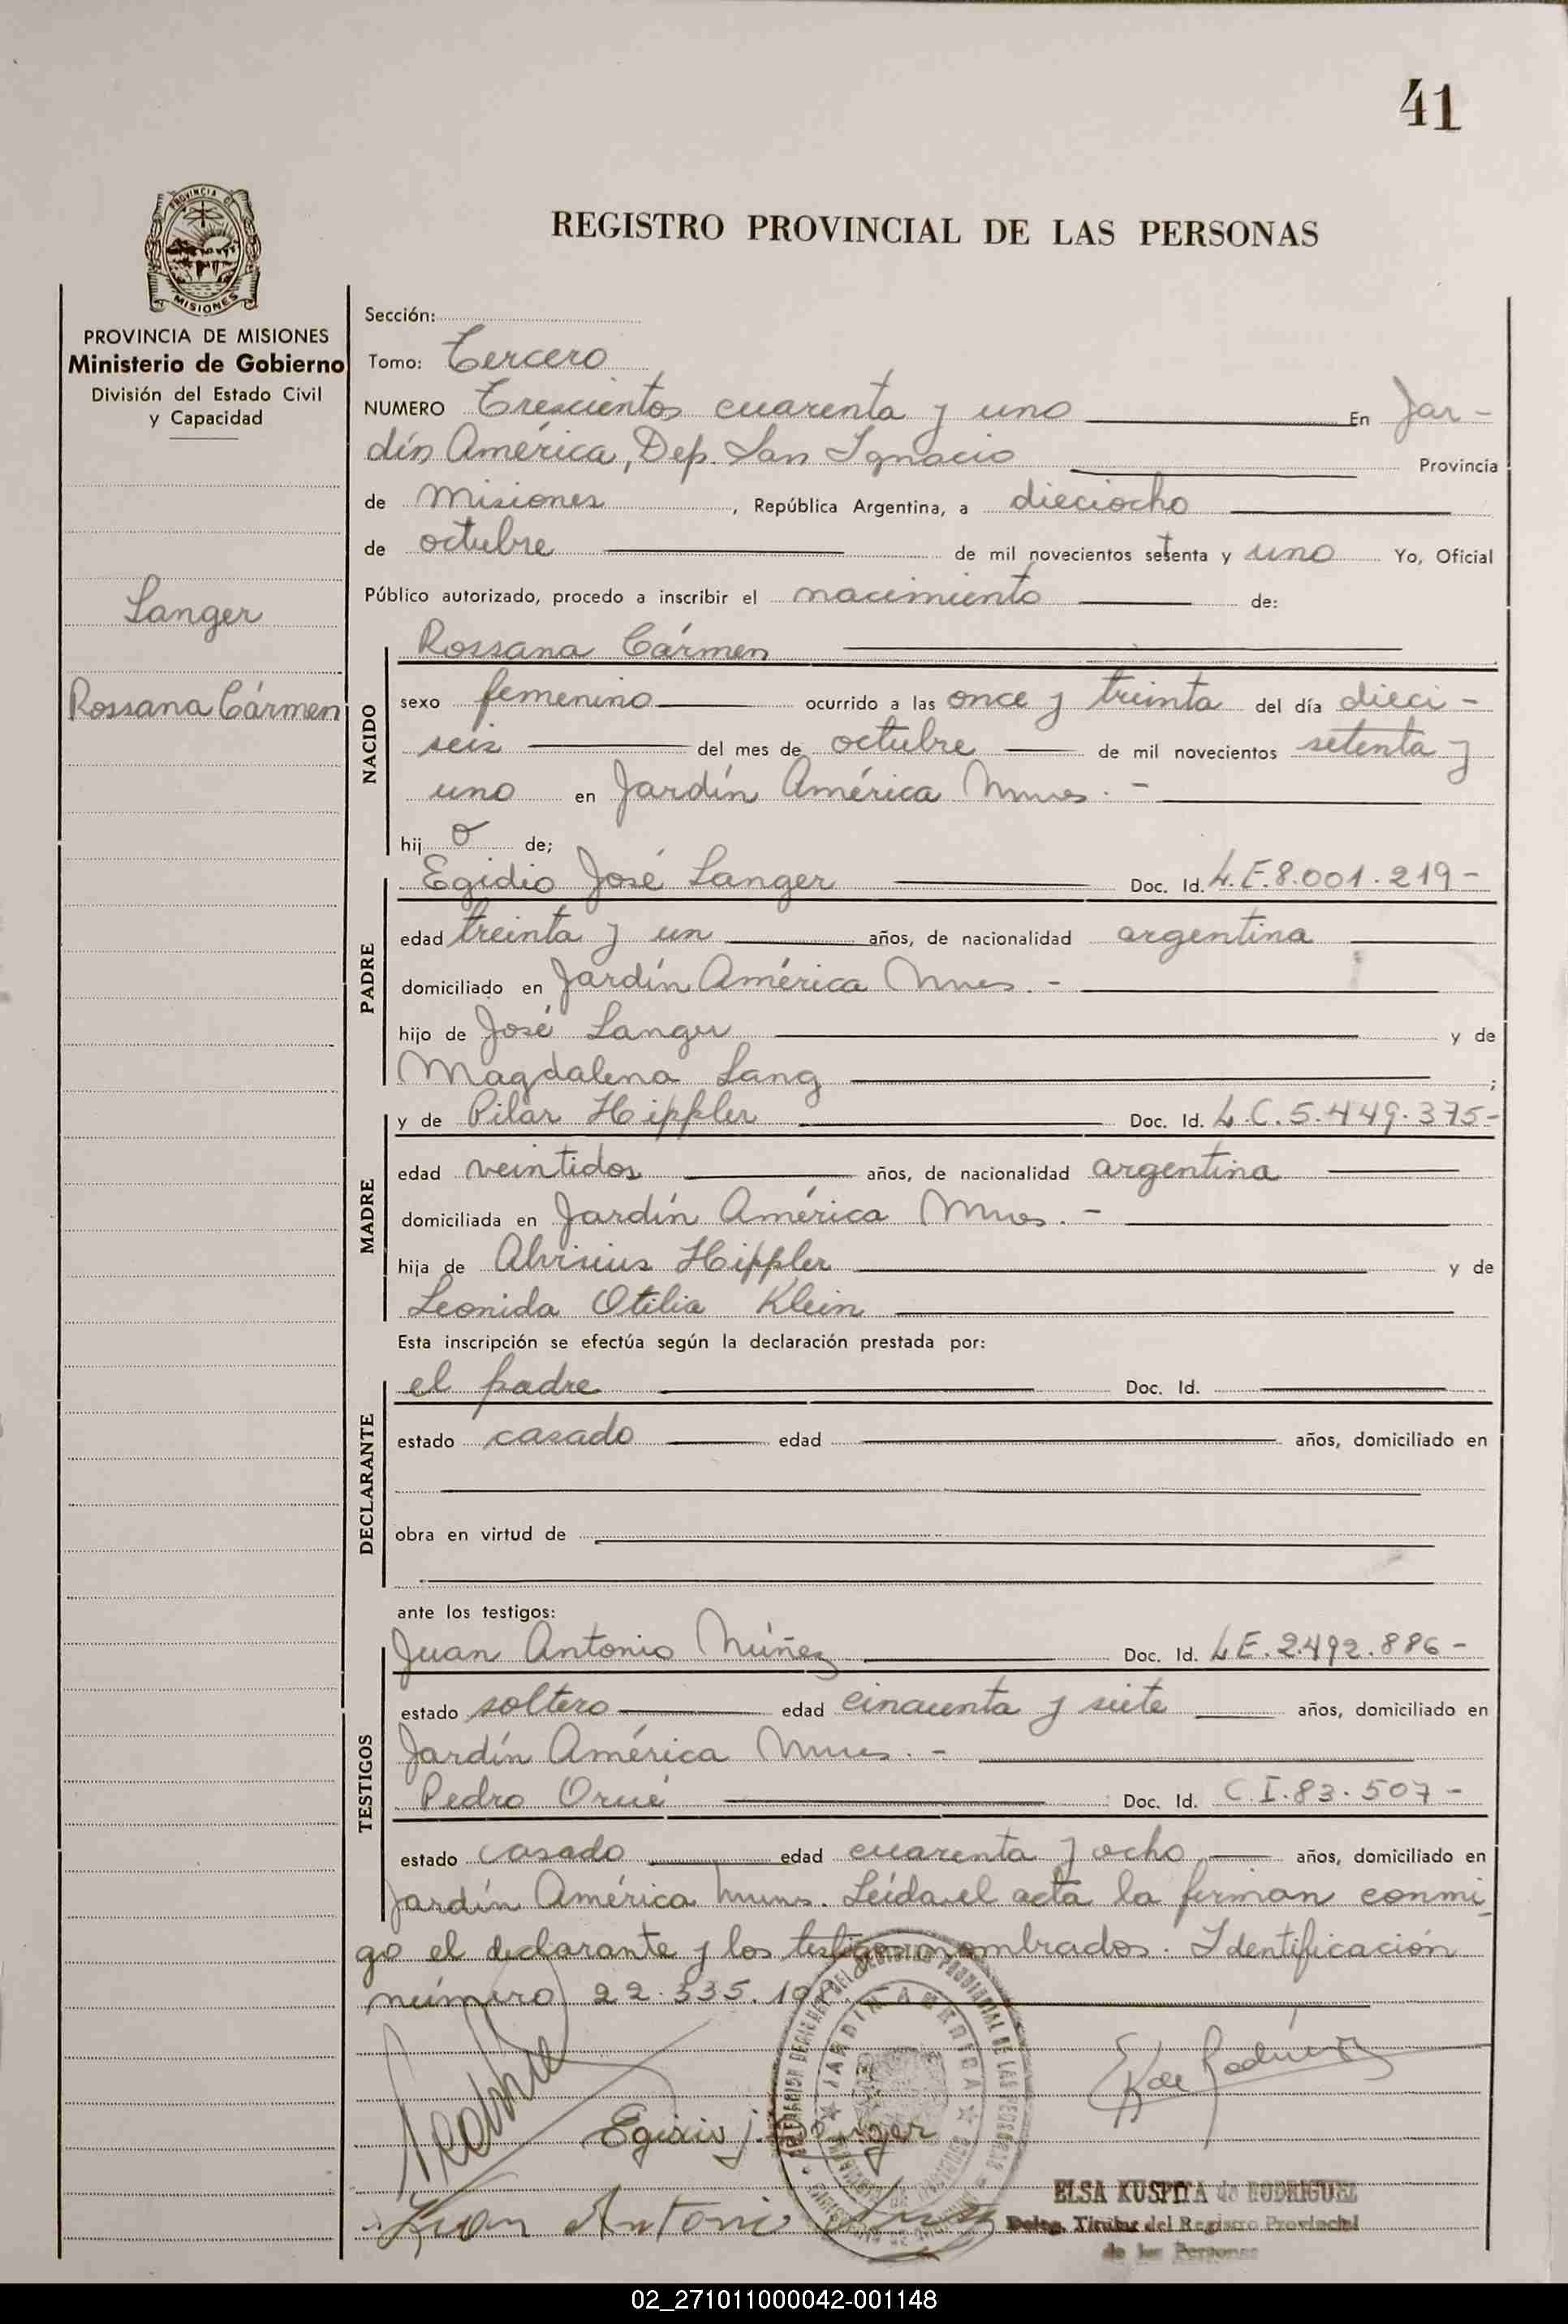 41
PROVINCIA DE
MISIONES
REGISTRO PROVINCIAL DE LAS PERSONAS
PROVINCIA DE MISIONES
Ministerio de Gobierno
División del Estado Civil
y Capacidad
Langer
Rossana Cármen
Sección:
Tomo: Tercero
NUMERO Trescientos cuarenta y uno En Jar-
dín América, Dep. San Ignacio Provincia
de Misiones, República Argentina, a dieciocho
de octubre de mil novecientos setenta y uno Yo, Oficial
Público autorizado, procedo a inscribir el nacimiento de:
NACIDO
Rossana Cármen
sexo femenino ocurrido a las once y treinta del día dieci-
seis del mes de octubre de mil novecientos setenta y
uno en Jardín América Mnes. -
hij o de;
PADRE
Egidio José Langer Doc. Id. L.E.8.001.219-
edad treinta y un años, de nacionalidad argentina
domiciliado en Jardín América Mnes. -
hijo de José Langer y de
Magdalena Lang ;
MADRE
y de Pilar Hippler Doc. Id. L.C.5.449.375-
edad veintidos años, de nacionalidad argentina
domiciliada en Jardín América Mnes. -
hija de Hippler y de
Leonida Otilia Klein
Esta inscripción se efectúa según la declaración prestada por:
DECLARANTE
el padre Doc. Id.
estado casado edad años, domiciliado en
obra en virtud de
ante los testigos:
TESTIGOS
Juan Antonio Núñez Doc. Id. L.E.2.492.886-
estado soltero edad cincuenta y siete años, domiciliado en
Jardín América Mnes. -
Pedro Orué Doc. Id. C.I.83.507-
estado casado edad cuarenta y ocho años, domiciliado en
Jardín América Mnes. Leída el acta la firman conmi-
go el declarante y los testigos nombrados. Identificación
número 22.335.
JARDIN AMERICA
Juan Antonio
ELSA KUSPITA de RODRIGUEZ
Deleg. Titular del Registro Provincial
de las Personas
02_271011000042-001148